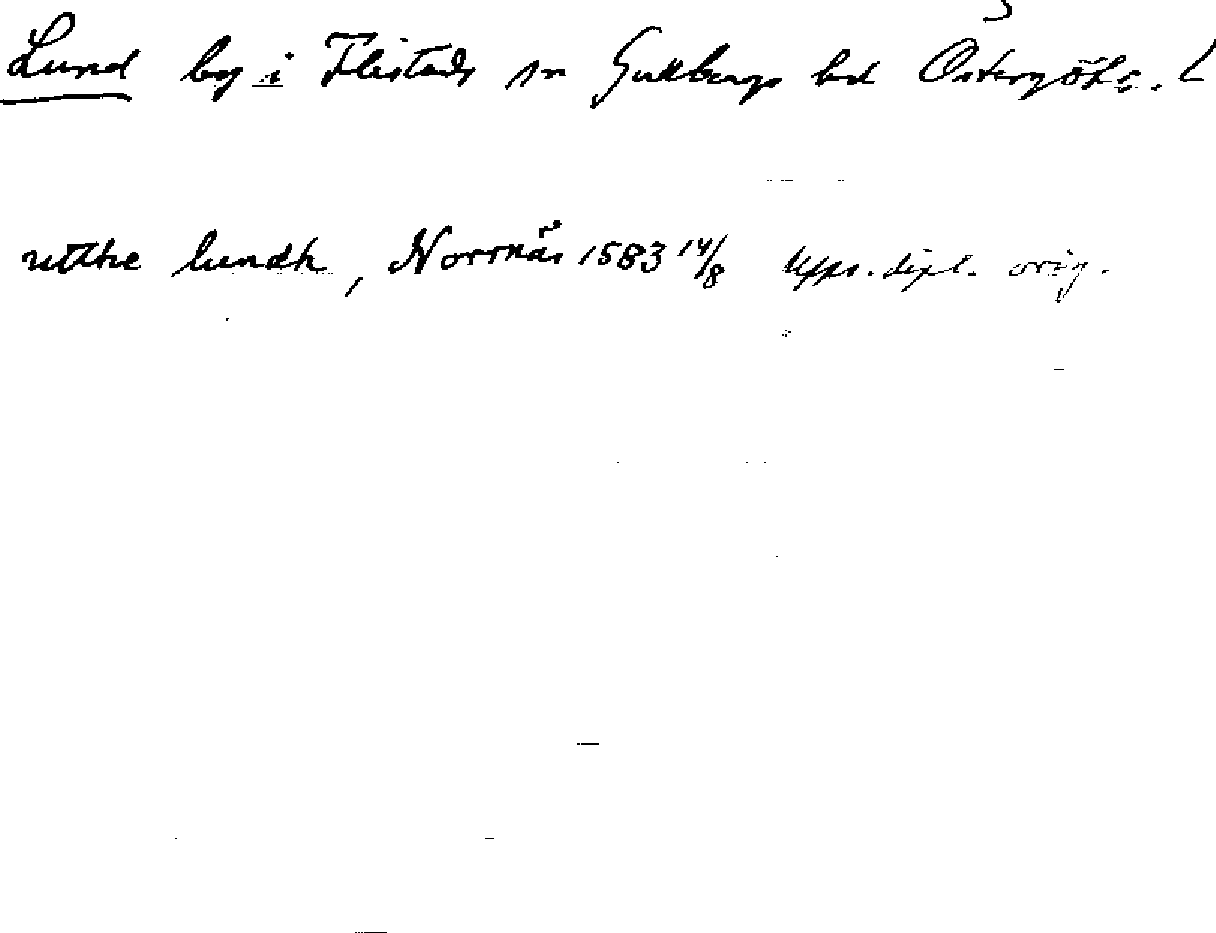 Lund by i Flistads sn Gullbergs hd Östergötl. L
utthe lundh, Norrnäs 1583 14/8 Upps. dipl. orig.